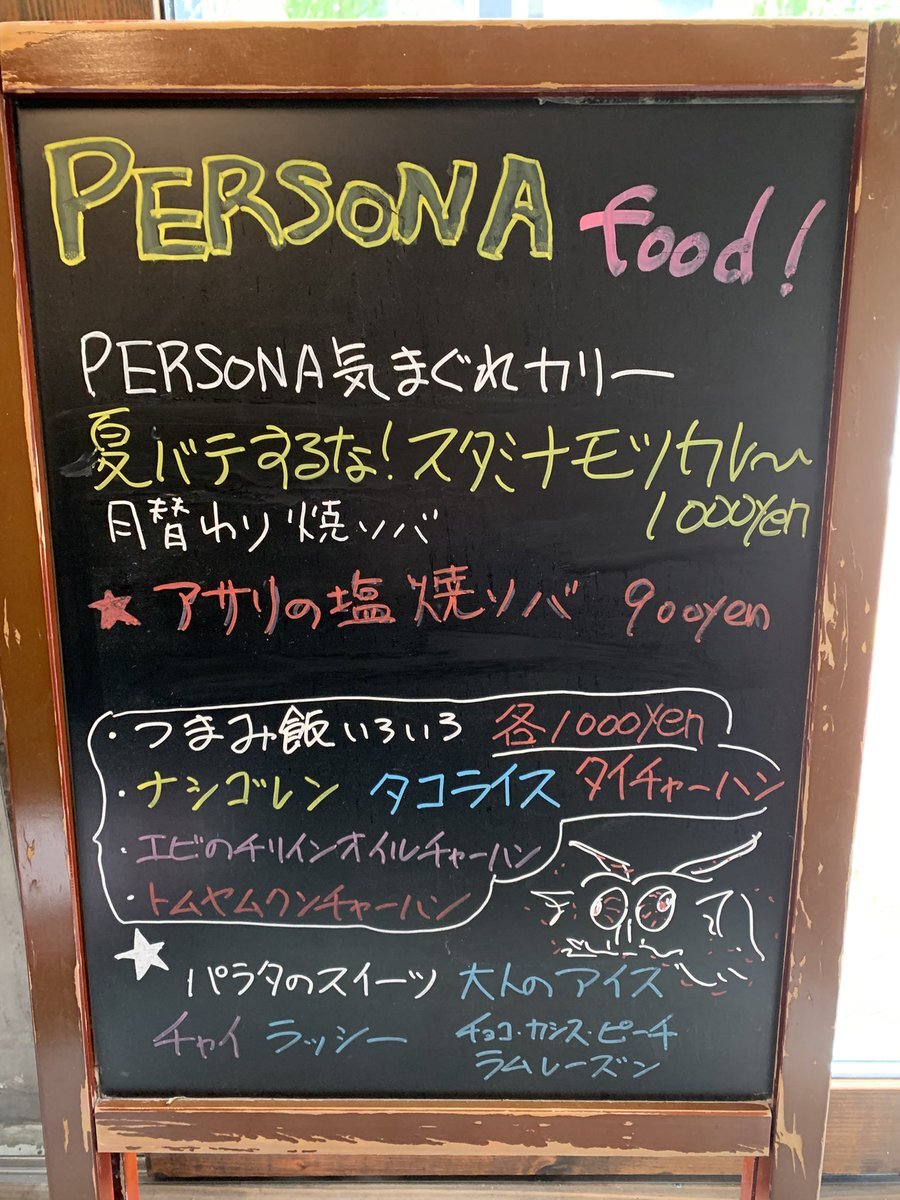 PERSONA food!
PERSONA気まぐれカリー
夏バテするな!スタミナモツカレ〜
1000yen
月替わり焼ソバ
★アサリの塩焼ソバ 900yen
・つまみ飯いろいろ 各1000yen
・ナシゴレン タコライス タイチャーハン
・エビのチリインオイルチャーハン
・トムヤムクンチャーハン
★
パラタのスイーツ 大人のアイス
チャイ ラッシー チョコ・カシス・ピーチ
ラムレーズン